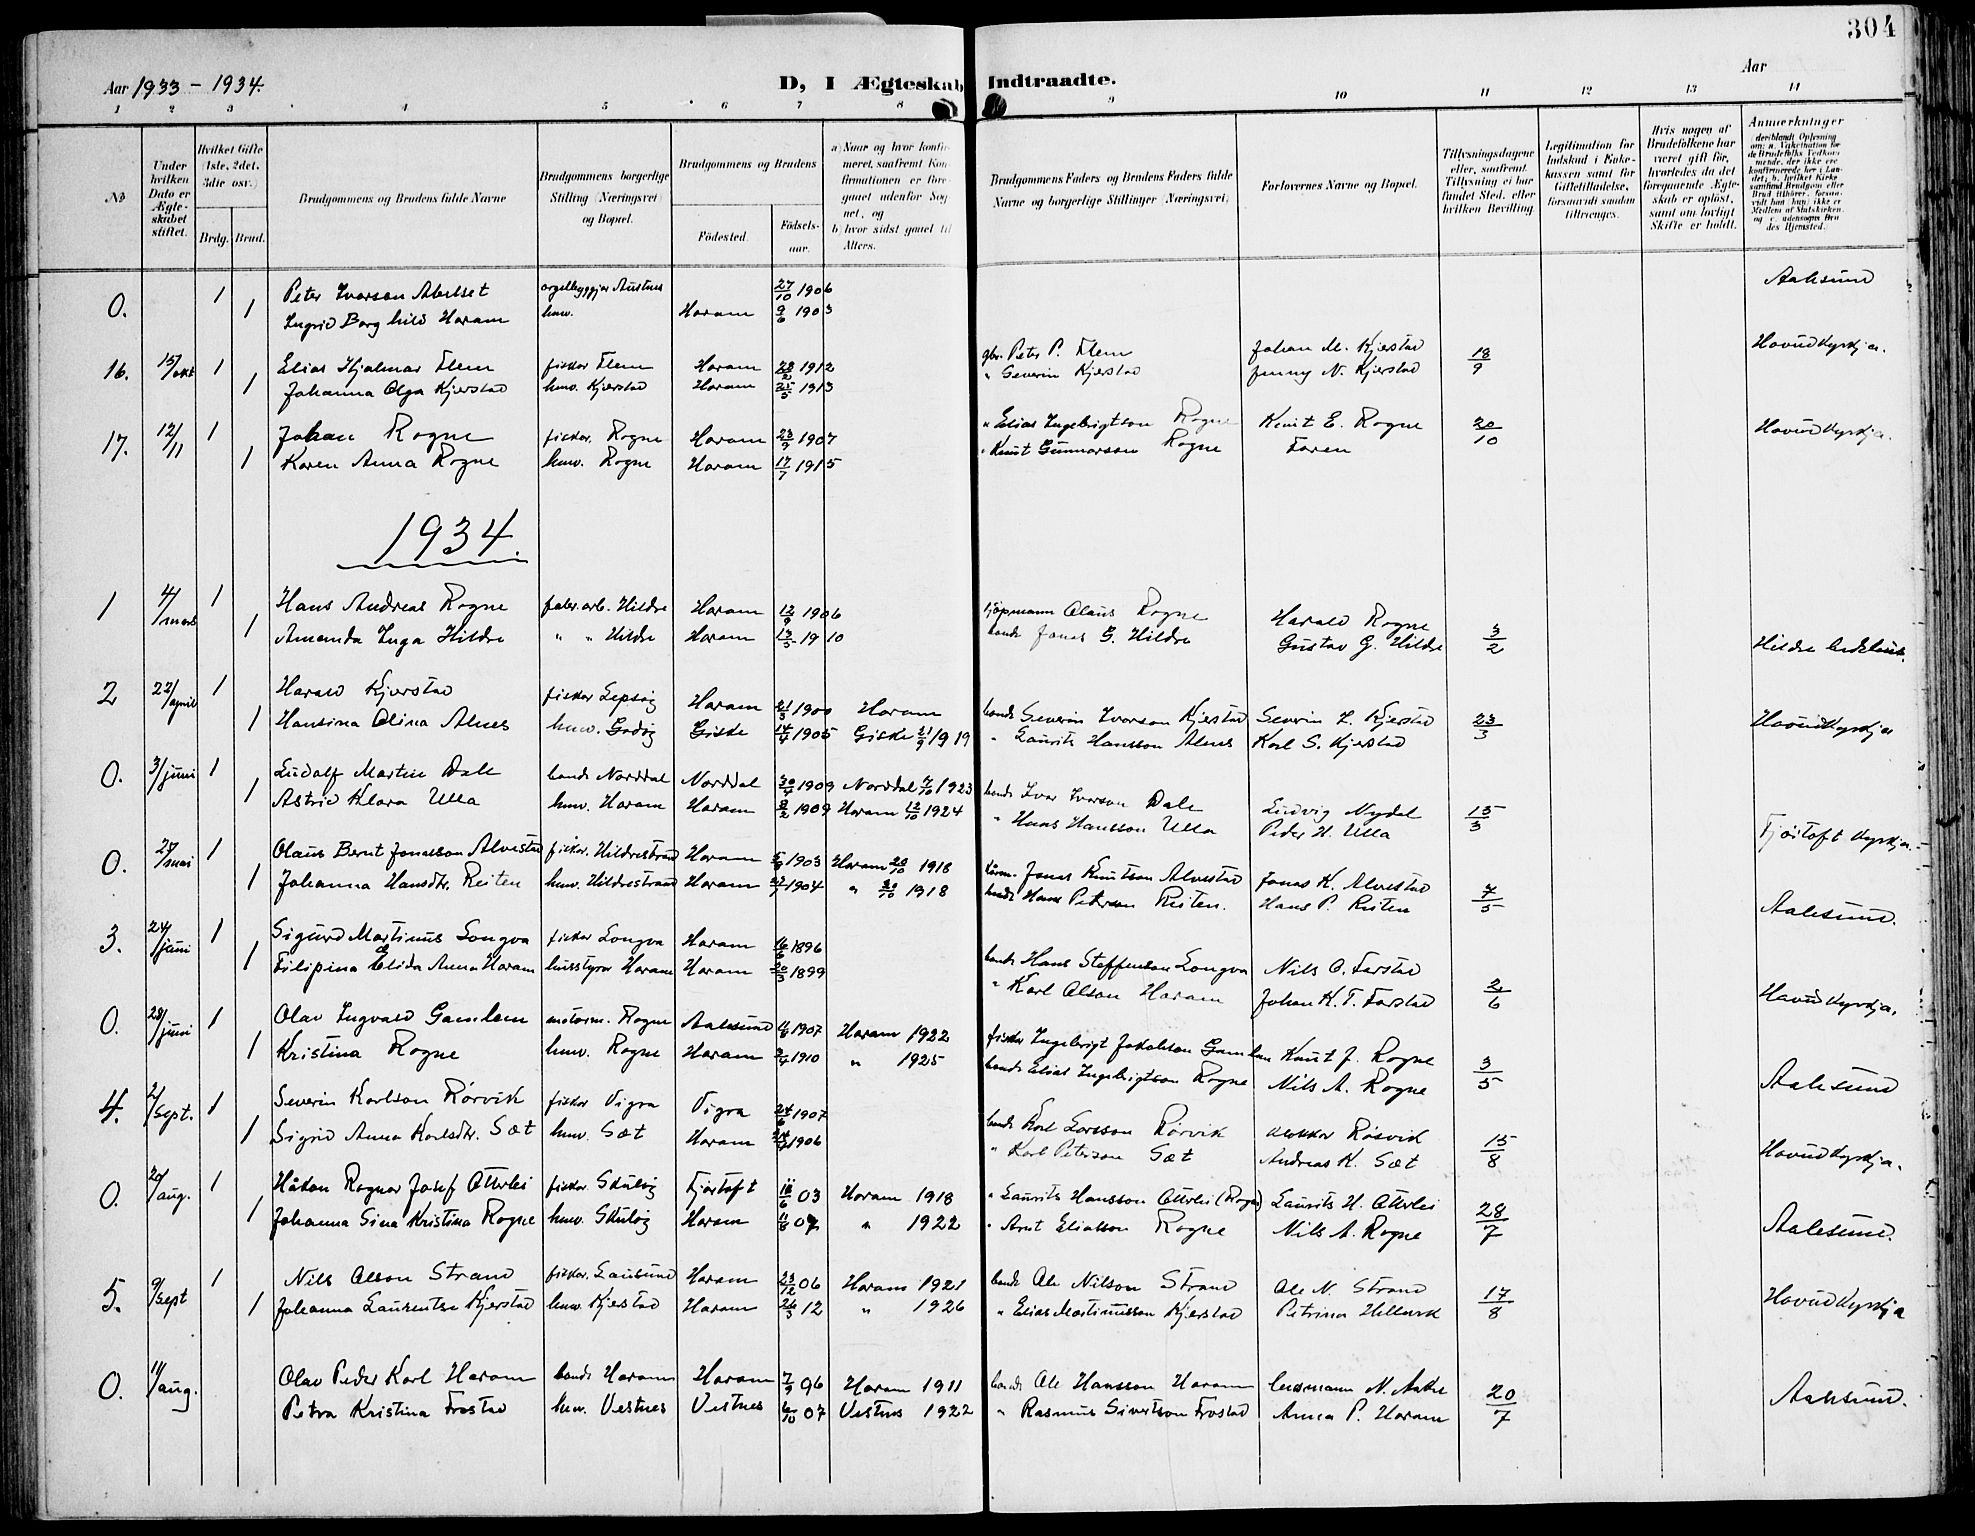 304
Aar 1933 - 1934.
D, I Ægteskab Indtraadte.
Aar
1 2 3 4 5 6 7 8 9 10 11 12 13 14
No
Under hvilken Dato er Ægteskabet stiftet.
Hvilket Gifte (1ste, 2det, 3die osv.)
Brdg. Brud.
Brudgommens og Brudens fulde Navne
Brudgommens borgerlige Stilling (Næringsvei) og Bopæl.
Brudgommens og Brudens
Fødested. Fødselsaar.
a) Naar og hvor konfirmeret, saafremt Konfirmationen er foregaaet udenfor Sognet, og
b) hvor sidst gaaet til Alters.
Brudgommens Faders og Brudens Faders fulde Navne og borgerlige Stillinger (Næringsvei)
Forlovernes Navne og Bopæl.
Tillysningsdagene eller, saafremt Tillysning ei har fundet Sted, efter hvilken Bevilling.
Legitimation for Indskud i Enkekassen samt for Giftetilladelse, forsaavidt saadan tiltrænges.
Hvis nogen af Brudefolkene har været gift før, hvorledes da det foregaaende Ægteskab er opløst, samt om lovligt Skifte er holdt.
Anmærkninger
0. 1 Peter Iverson orgelbyggjer Austnes 27/10 1906 Aalesund
1 Ingrid Borghild Haram hmv. Haram 9/6 1903
16. 15/okt 1 Elias Hjalmar Flem fisker Flem Haram 28/2 1912 gbr. Peter P. Flem Johan M. Kjerstad 18/9 Hovudkyrkja.
1 Johanna Olga Kjerstad hmv. Kjerstad Haram 25/5 1913 " Severin Kjerstad Jenny N. Kjerstad
17. 12/11 1 Johan Rogne fisker. Rogne Haram 23/9 1907 " Elias Ingebrigtson Rogne Knut E. Rogne 20/10 Hovudkyrkja.
1 Karen Anna Rogne hmv. Rogne Haram 17/7 1915 " Knut Gunnarson Rogne Faren
1934.
1 4/mars 1 Hans Andreas Rogne fabr.arb. Hildre Haram 12/9 1906 Olaus Rogne Harald Rogne 3/2
1 Amanda Inga Hildre " " Hildre Haram 13/5 1910 bonde Jonas G. Hildre Gustav G. Hildre Hildre bedehus.
2 22/april 1 Harald Kjerstad fisker Lepsøy Haram 21/3 1900 Haram bonde Severin Iverson Kjerstad Severin I. Kjerstad 23/3 Hovudkyrkja
1 Hansina Olina Alnes hmv. Godøy Giske 14/4 1905 Giske 21/9 1919 " Laurits Hansson Alnes Karl S. Kjerstad
0. 3/juni 1 Ludolf Martin Dale bonde Norddal Norddal 30/4 1909 Norddal 7/10 1923 bonde Ivar Iverson Dale Ludvig Nydal 15/3
1 Astrid Klara Ulla hmv. Haram Haram 9/2 1909 Haram 12/10 1924 " Hans Hansson Ulla Peder H. Ulla Fjørtoft kyrkja.
0. 27/mai 1 Olaus Bernt Jonasson Alvestad fisker. Hildrestrand Haram 1903 Haram 20/10 1918 Jonas Knutson Alvestad Jonas K. Alvestad 7/5
1 Johanna Hansdtr. Reiten hmv. Hildrestrand Haram 1904 " 20/10 1918 bonde Hans Peterson Reiten. Hans P. Reiten Aalesund.
3. 24/juni 1 Sigurd Martinus Longva fisker Longva Haram 1896 bonde Hans Steffenson Longva Nils O. Farstad 2/6
1 Filipina Elida Anna Haram husstyrar Haram Haram 1899 " Karl Olson Haram Johan K. T. Farstad Hovudkyrkja.
0. 28/juni 1 Olav Ingvald Gamlem motorm. Rogne Aalesund 1907 Haram 1922 fisker Ingebrigt Jakobson Gamlem Knut J. Rogne 3/5
1 Kristina Rogne hmv. Rogne Haram 1910 " 1925 bonde Elias Ingebrigtson Rogne Nils A. Rogne Aalesund
4. 2/sept. 1 Severin Karlson Rørvik fisker Vigra Vigra 1907 bonde Karl Larsson Rørvik 15/8
1 Sigrid Anna Karlsdtr. Sæt hmv. Sæt Haram 1906 " Karl Peterson Sæt Andreas K. Sæt Hovudkyrkja.
0. 20/aug. 1 Håkon Ragnar Josef Otterlei fisker Skuløy Fjørtoft 18/6 03 Haram 1918 " Laurits Hansson Otterlei (Rogne) Laurits H. Otterlei 28/7
1 Johanna Sina Kristina Rogne hmv. Skuløy Haram 11/8 07 " 1922 " Arnt Eliasson Rogne Nils A. Rogne Aalesund.
5. 9/sept 1 Nils Olson Strand fisker. Haram 23/12 06 Haram 1921 bonde Ole Nilson Strand Ole N. Strand 17/8
1 Johanna Laurentse Kjerstad hmv. Kjerstad Haram 26/3 12 " 1926 " Elias Martinusson Kjerstad Petrina Hellevik Hovudkyrkja
0. 11/aug. Olav Peder Karl Haram bonde Haram Haram 7/9 96 Haram 1911 bonde Ole Hansson Haram N. Aakre 20/7
Petra Kristina Frostad hmv. Vestnes Vestnes 6/10 07 Vestnes 1922 " Rasmus Sivertson Frostad Anna P. Haram Aalesund.